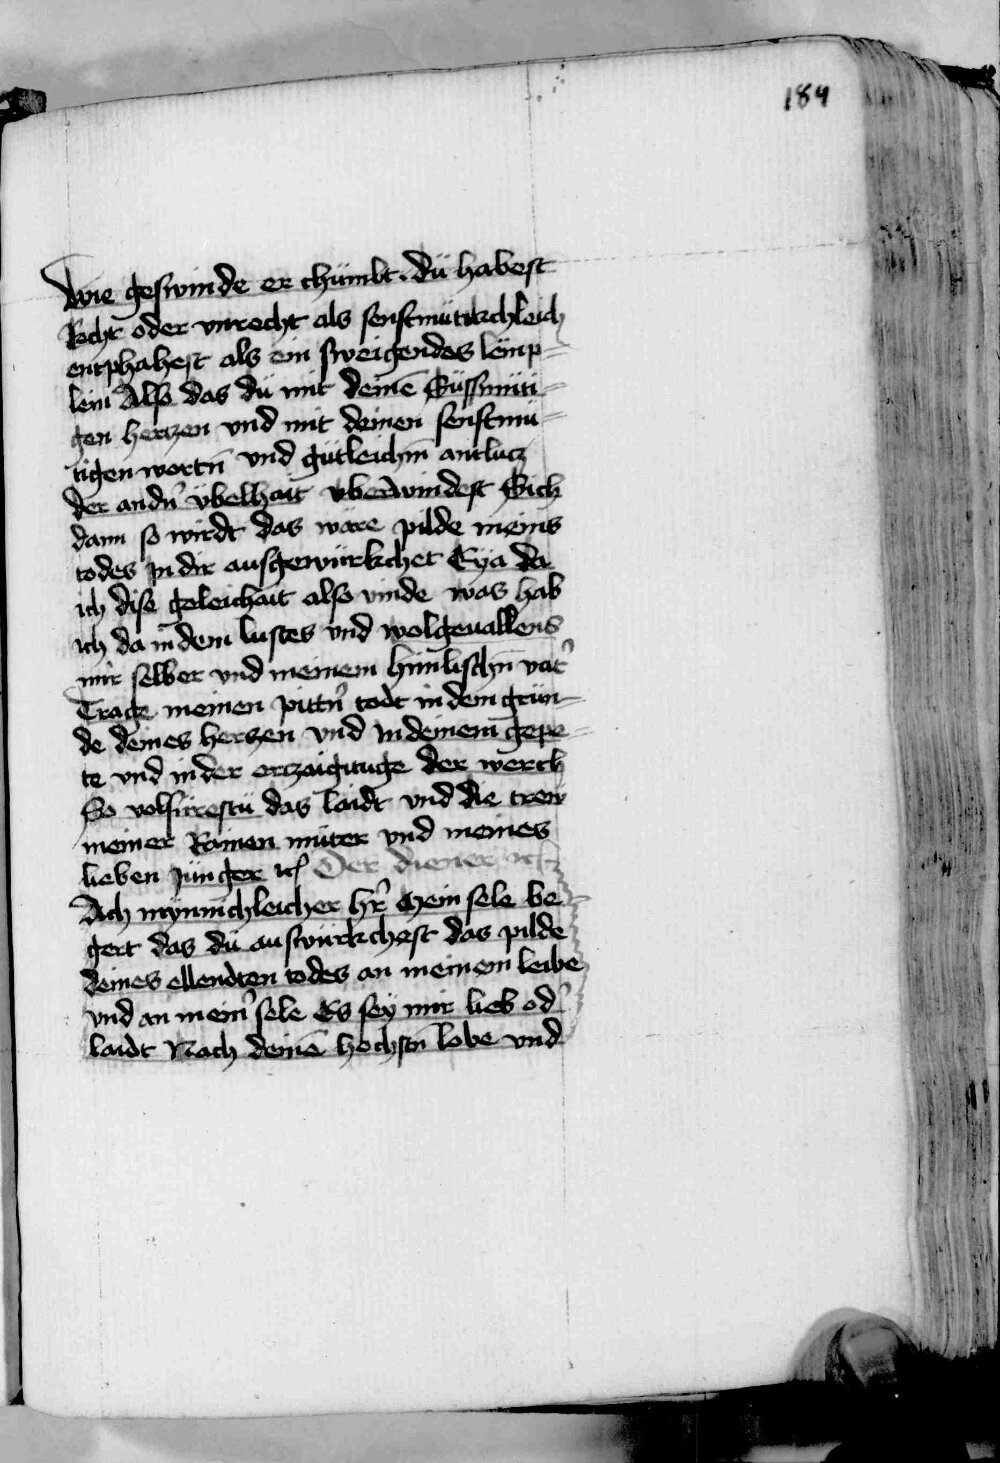 184
Wie geswinde er chümbt. dü habest
Recht oder vnrecht als senftmütikchleich
entphahest als ein sweigendes lemp=
lein Also das dü mit deinē Süssmüti=
gen herczen vnd mit deinen senftmü=
tigen wortn̄ vnd gütleichm̄ antlucz
der andn̉ übelhait vberwindest Sich
dann so wirdt das wäre pilde meins
todes in dir ausgewürkchet Eya da
ich dise geleichait also vinde was hab
ich da in dem lustes vnd wolgeuallens
mir selber vnd meinem himlischn̄ vat̉
Trage meinen pittn̉ todt in dem grün=
de deines herczen vnd in deinem gepe=
te vnd in der erczaigunge der werch
So volfürestü das laidt vnd die trew
meiner Rainen müter vnd meines
lieben Jünger ꝛcͣ Der diener ꝛcͣ
Ach mynnichleicher hr̉ Mein sele be=
gert das dü auswürkchest das pilde
deines ellendten todes an meinem leibe
vnd an mein̉ sele Es sey mir lieb od̉
laidt Nach deinē höchstn̄ lobe vnd